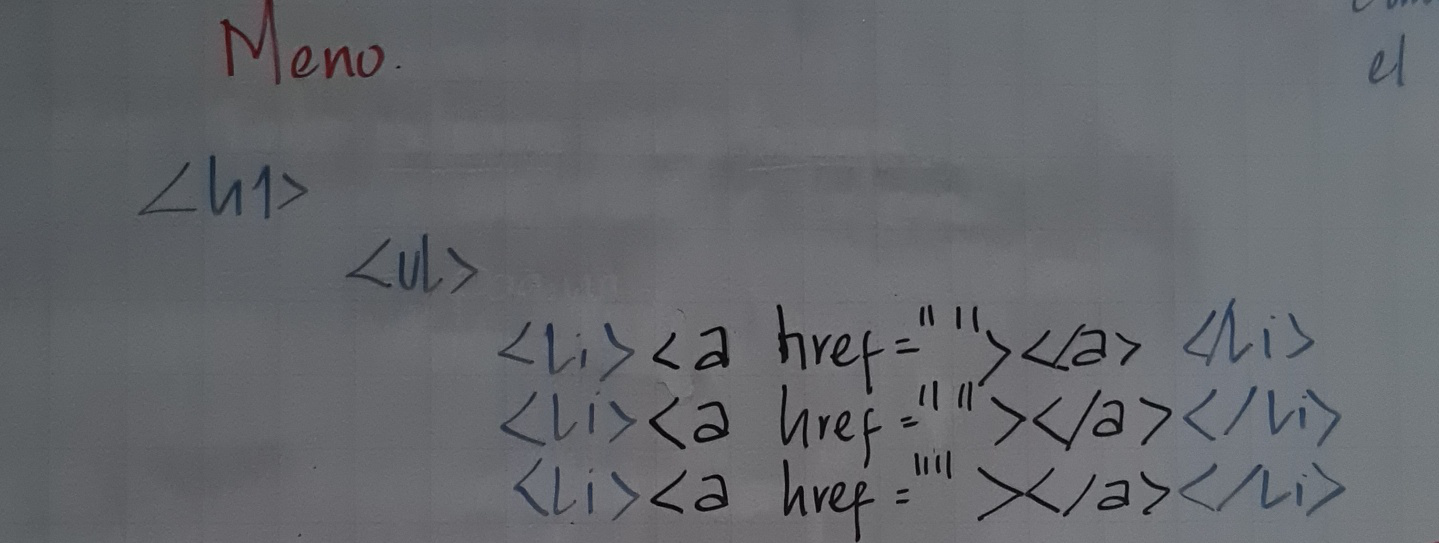 Meno.
el
<h1>
<ul>
<li><a href=""></a> </li>
<li><a href=""></a></li>
<li><a href=""></a></li>